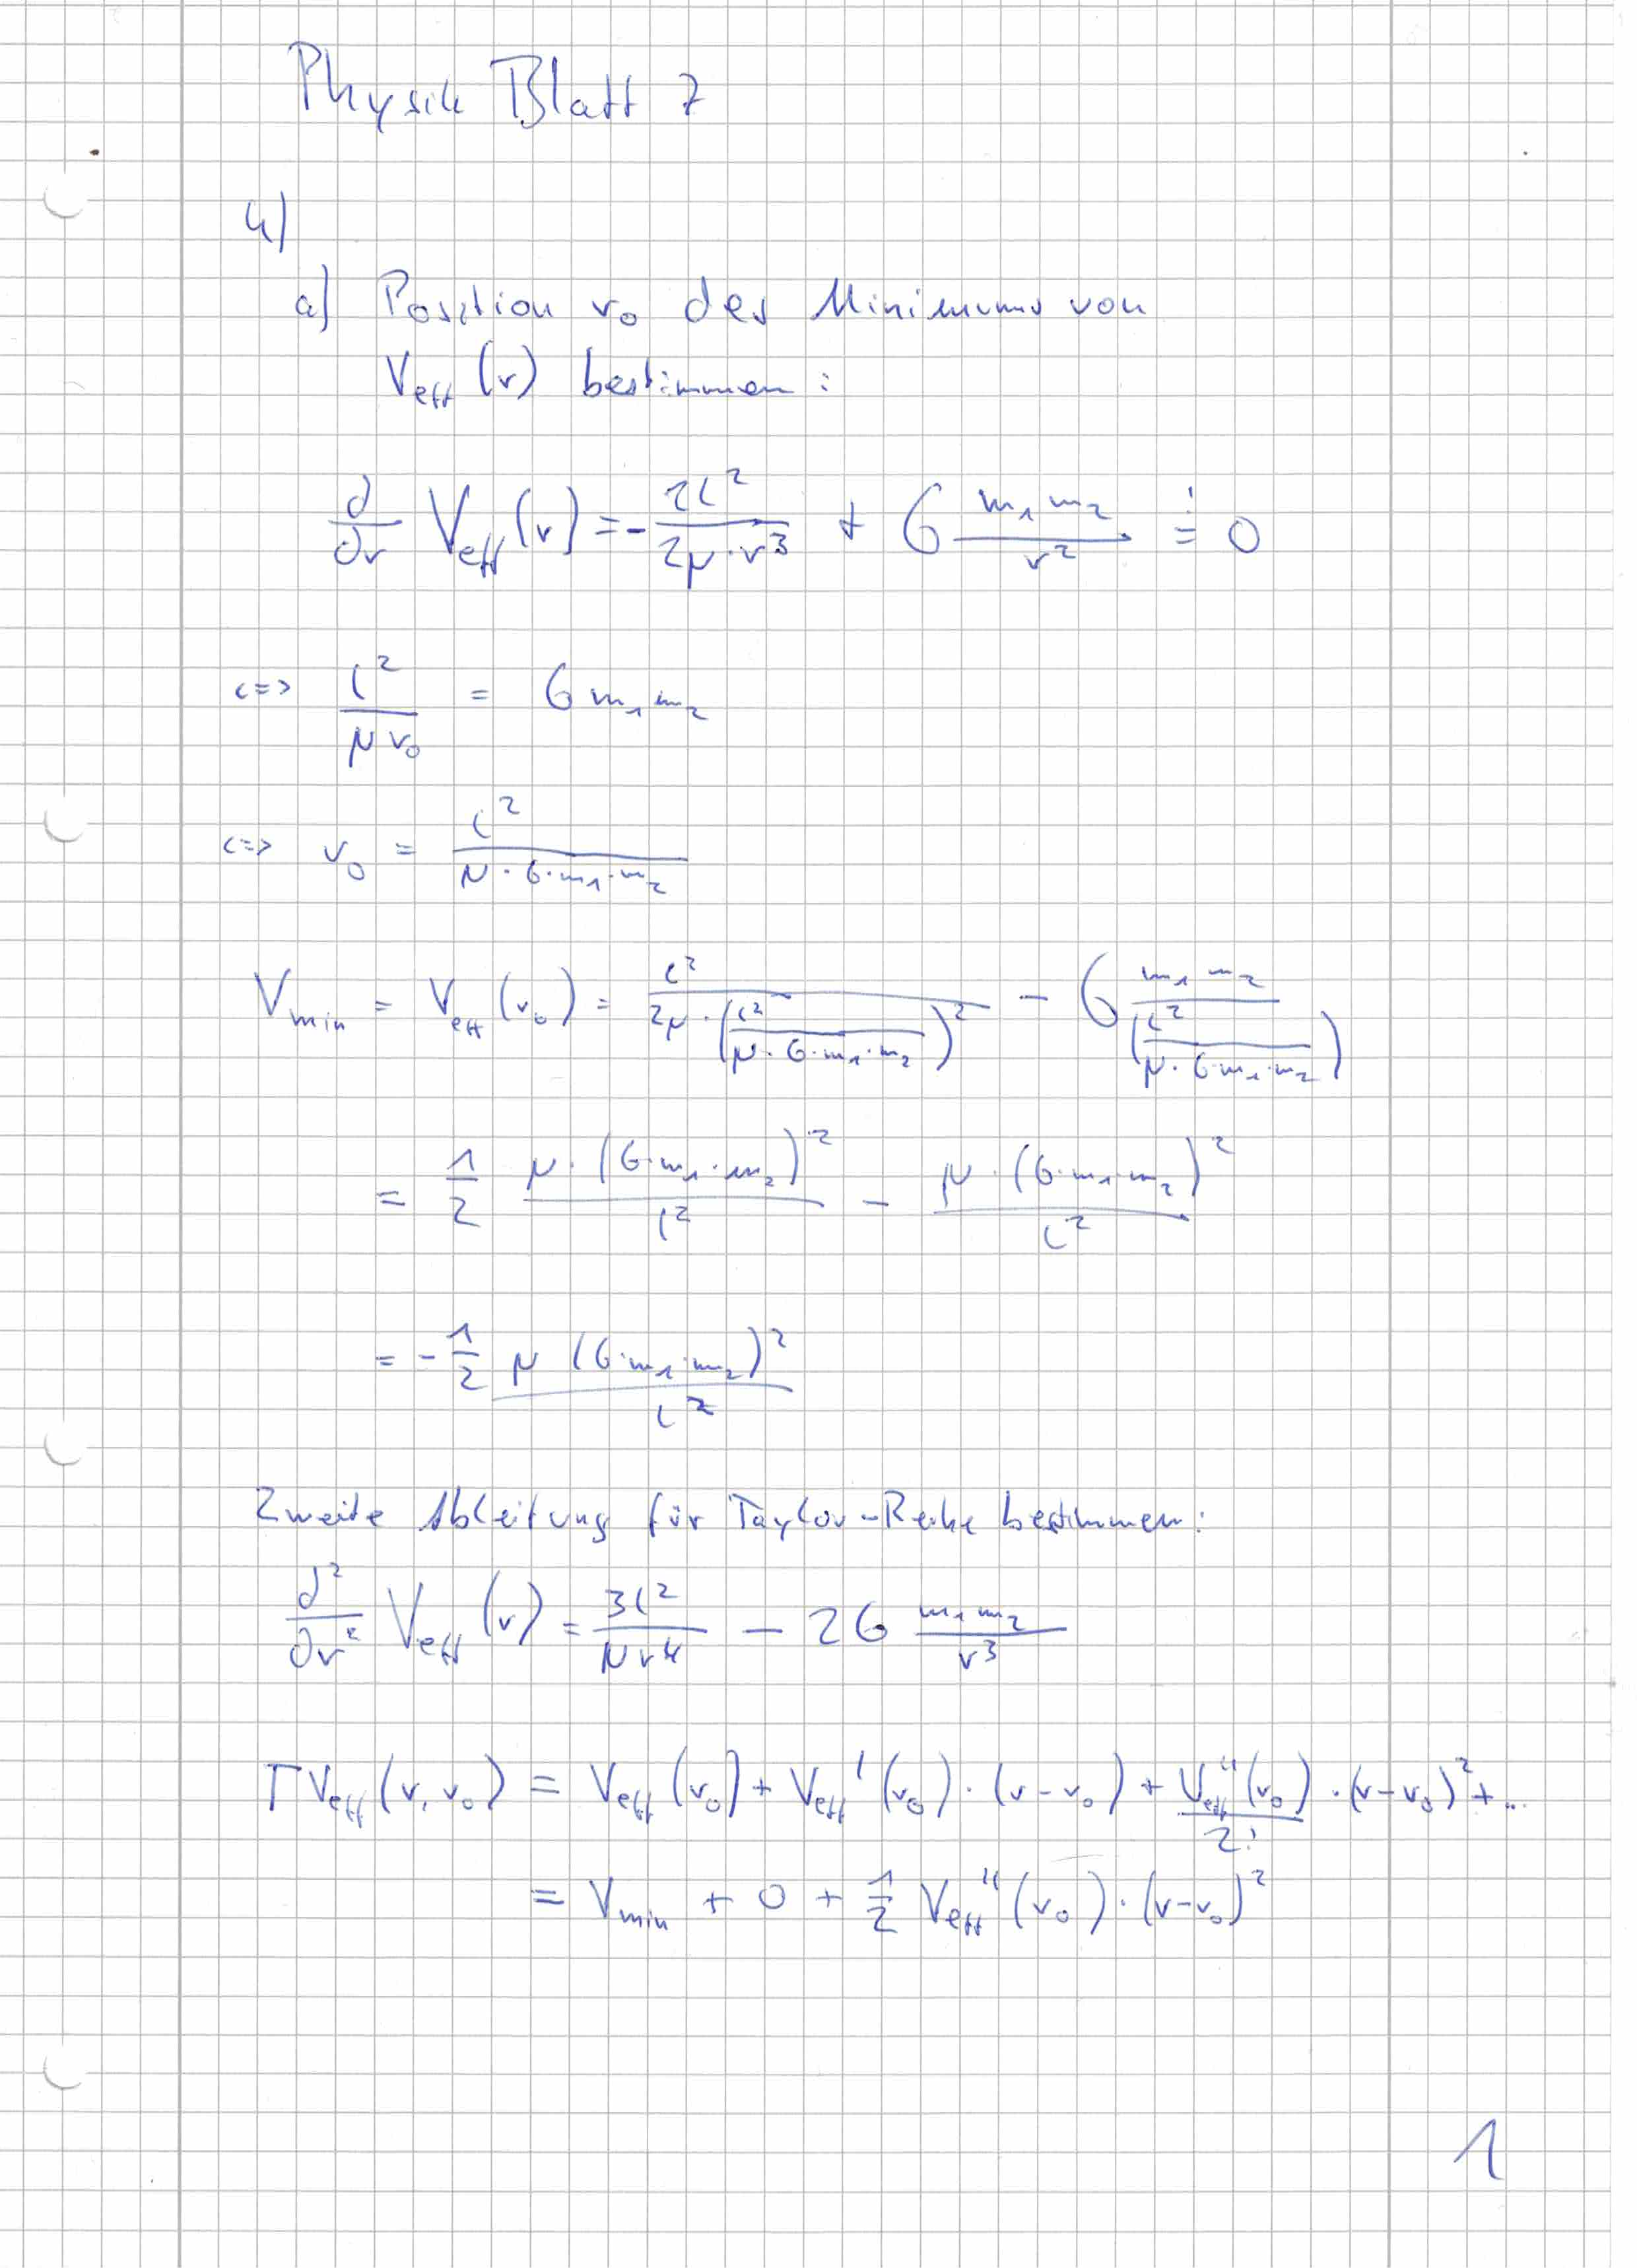 Physik Blatt 7
4)
a) Position r₀ des Minimums von
V_eff (r) bestimmen :
∂/∂r V_eff (r) = - 2L²/(2μ · r³) + G m₁ m₂/r² =! 0
<=> L²/(μ r₀) = G m₁ m₂
<=> r₀ = L²/(μ · G · m₁ · m₂)
V_min = V_eff (r₀) = L²/(2μ · (L²/(μ · G · m₁ · m₂))²) - G m₁ m₂/(L²/(μ · G · m₁ · m₂))
= 1/2 μ · (G · m₁ · m₂)²/L² - μ · (G · m₁ · m₂)²/L²
= - 1/2 μ (G · m₁ · m₂)²/L²
Zweite Ableitung für Taylor-Reihe bestimmen:
∂²/∂r² V_eff (r) = 3L²/(μ r⁴) - 2G m₁ m₂/r³
T V_eff (r, r₀) = V_eff (r₀) + V_eff' (r₀) · (r - r₀) + V_eff'' (r₀)/2! · (r - r₀)² + ...
= V_min + 0 + 1/2 V_eff'' (r₀) · (r - r₀)²
1